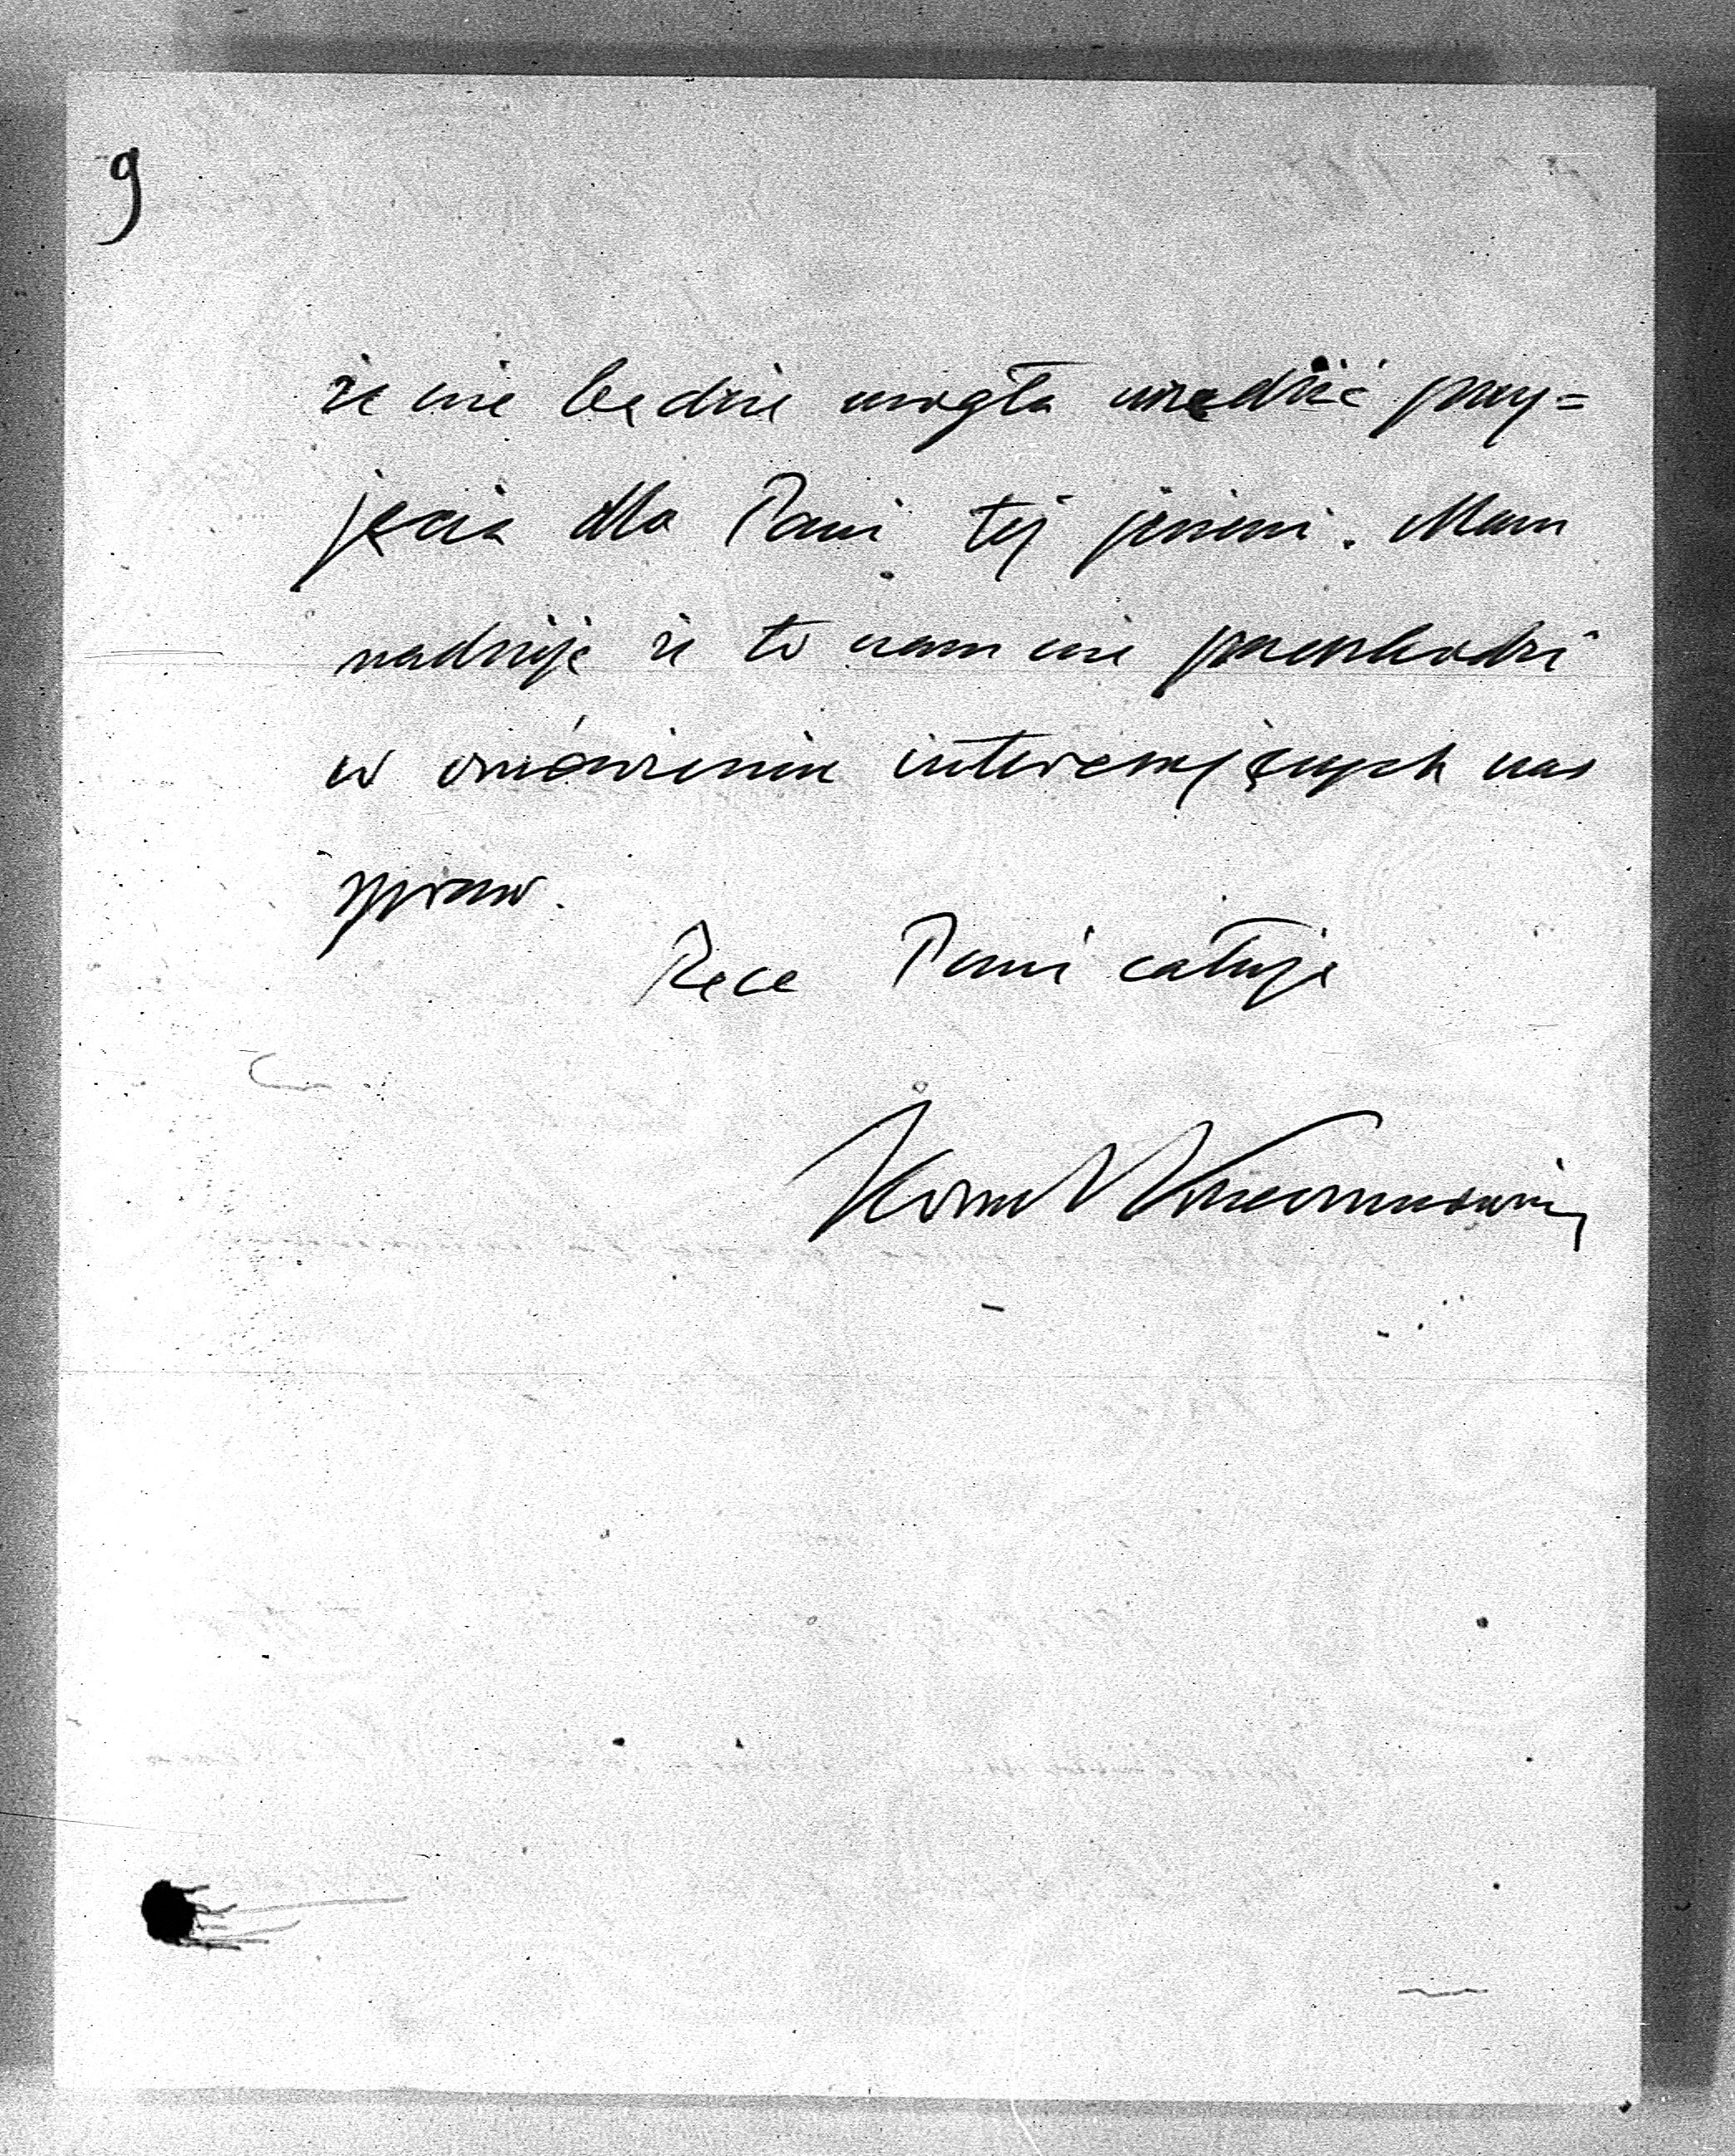 9
że nie będzie mogła urządzić przy=
jęcia dla Pani tej jesieni. Mam
nadzieję że to nam nie przeszkodzi
w omówieniu interesujących nas
spraw.
Ręce Pani całuję